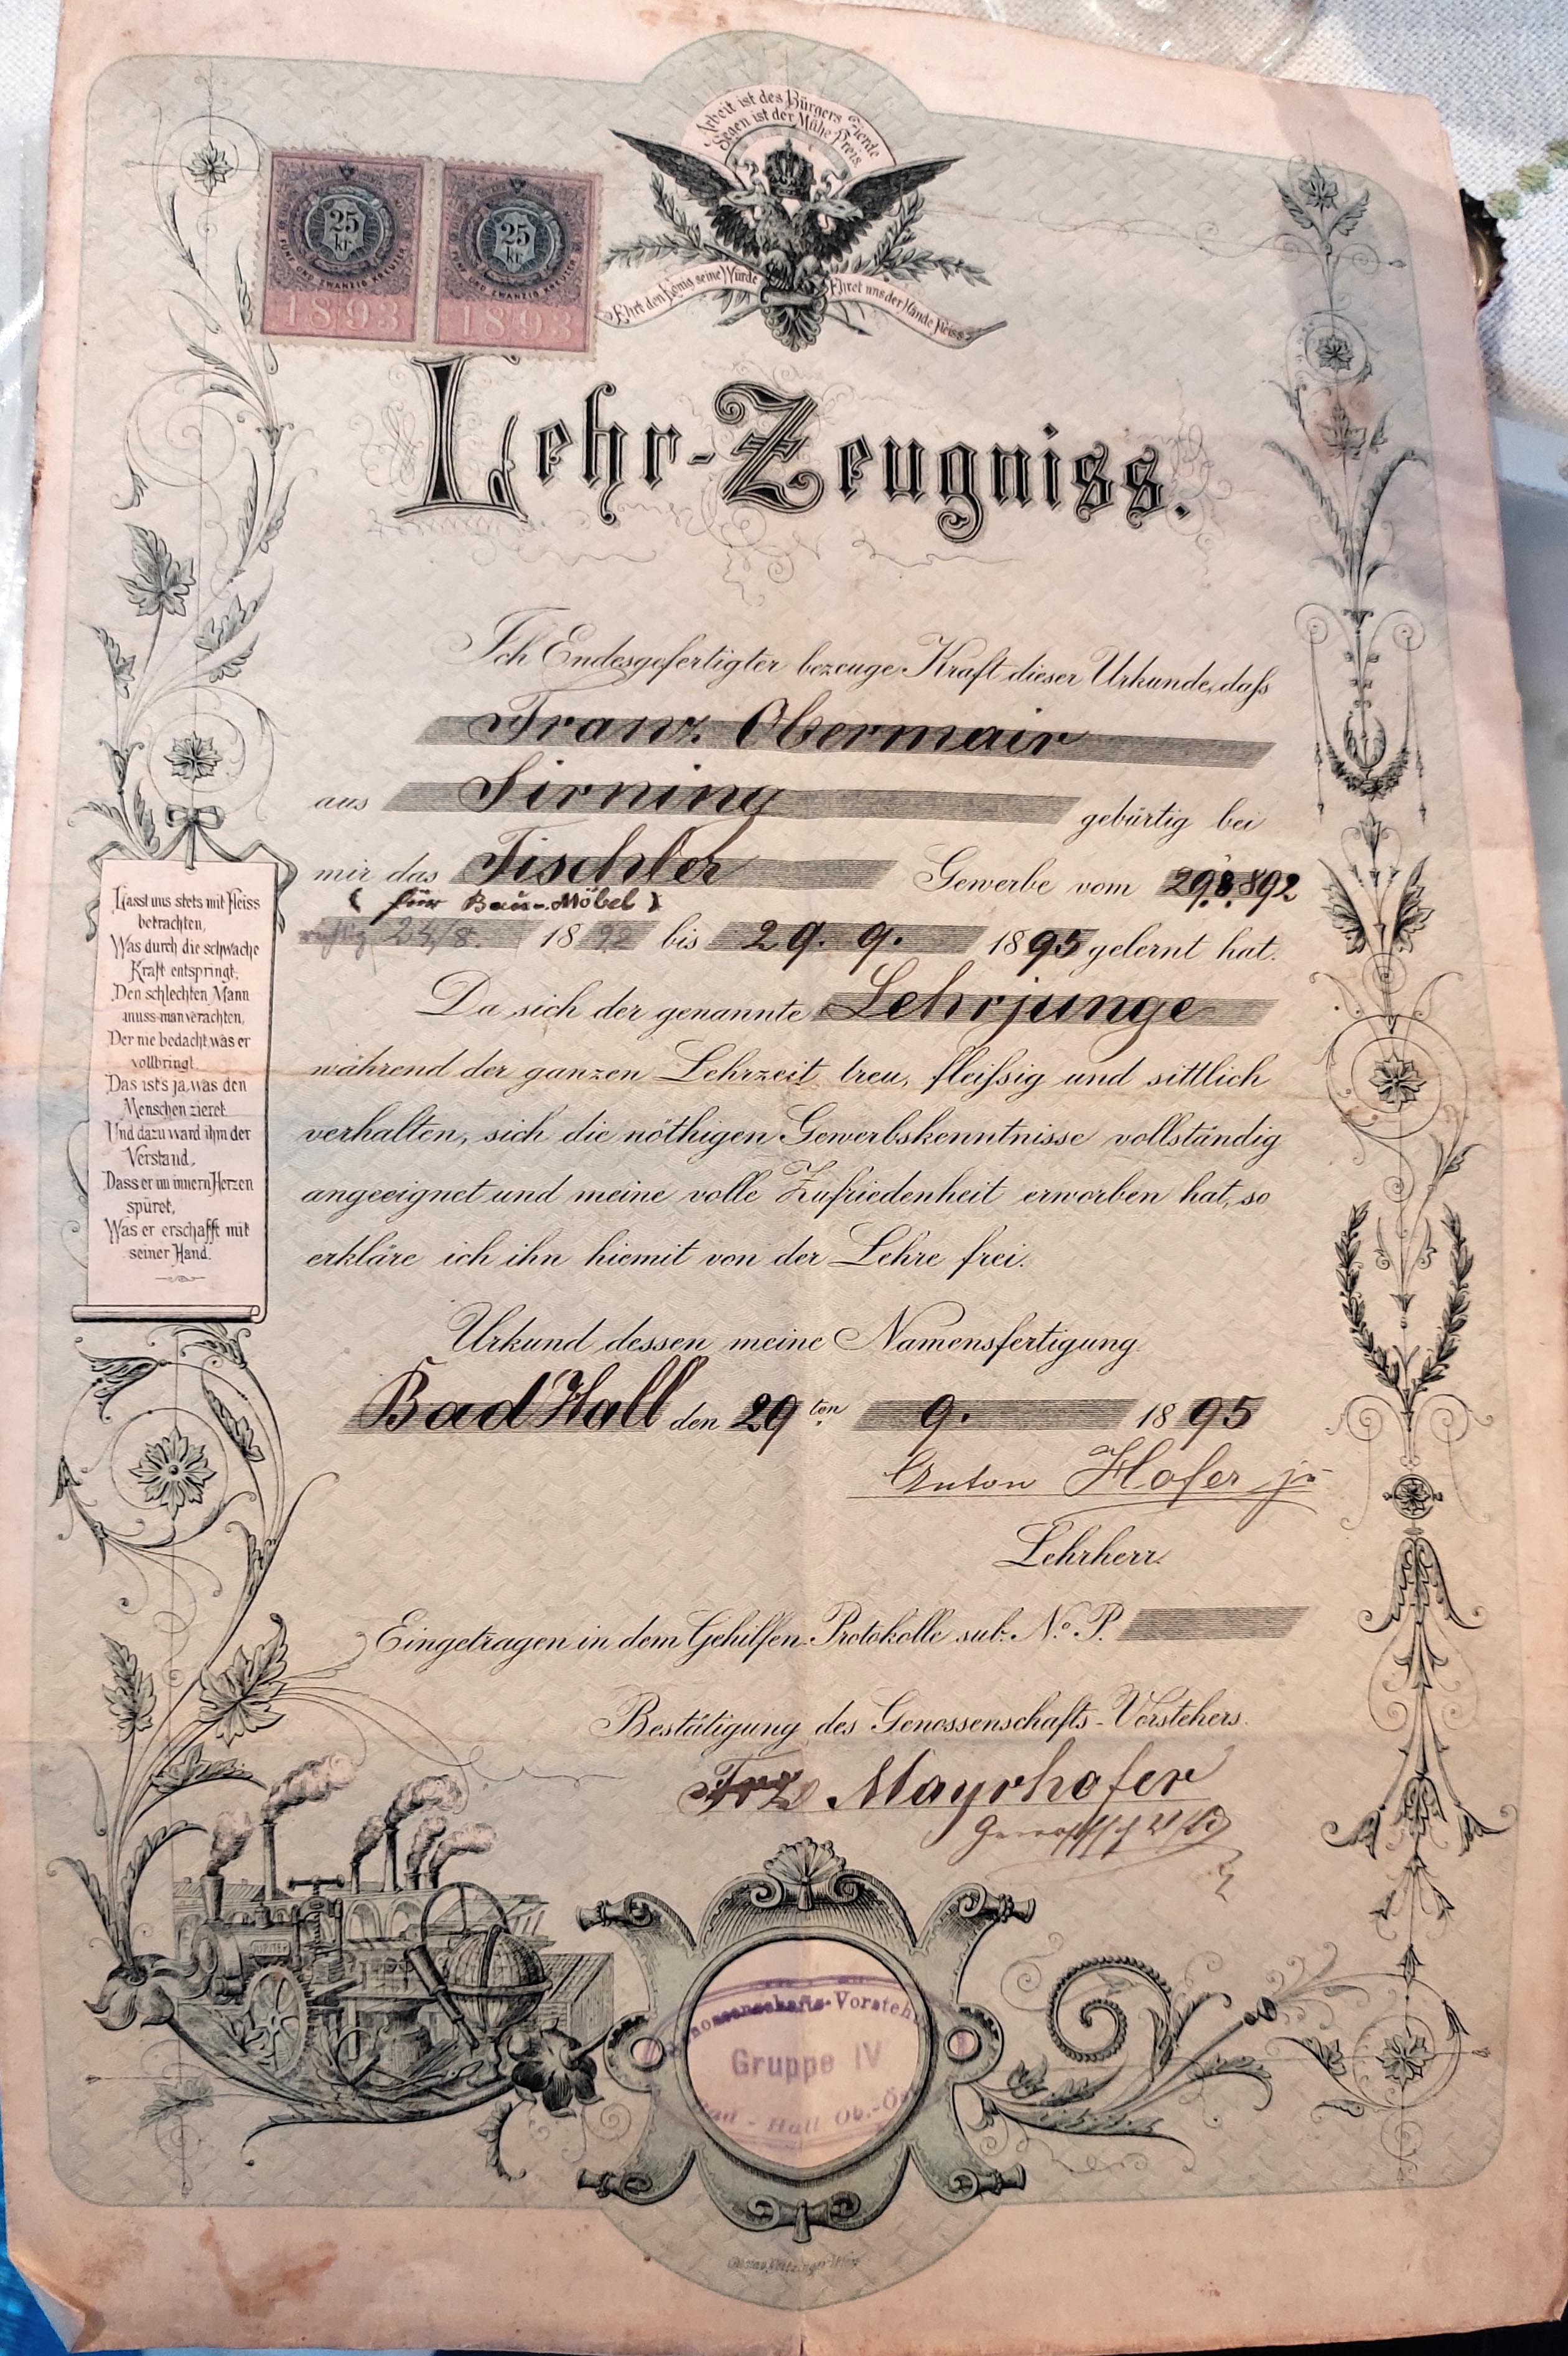 Arbeit ist des Bürgers Zierde
Segen ist der Mühe Preis
Ehrt den König seine Würde
Ehret uns der Hände Fleiss
25
kr
FÜNF UND ZWANZIG KREUZER
1893
25
kr
FÜNF UND ZWANZIG KREUZER
1893
Lehr-Zeugniss.
Ich Endesgefertigter bezeuge Kraft dieser Urkunde, daß
Franz Obermair
aus Sirning gebürtig bei
mir das Tischler Gewerbe vom 29.8.892
( für Bau-Möbel )
24/8. 18 92 bis 29. 9. 1895 gelernt hat.
Da sich der genannte Lehrjunge
während der ganzen Lehrzeit treu, fleißig und sittlich
verhalten, sich die nöthigen Gewerbskenntnisse vollständig
angeeignet und meine volle Zufriedenheit erworben hat, so
erkläre ich ihn hiemit von der Lehre frei.
Urkund dessen meine Namensfertigung
Bad Hall den 29ten 9. 1895
Anton Hofer jr
Lehrherr.
Eingetragen in dem Gehilfen-Protokolle sub. No. P.
Bestätigung des Genossenschafts-Vorstehers.
Frz Mayrhofer
Lasst uns stets mit Fleiss
betrachten,
Was durch die schwache
Kraft entspringt,
Den schlechten Mann
muss man verachten,
Der nie bedacht, was er
vollbringt.
Das ist's ja, was den
Menschen zieret
Und dazu ward ihm der
Verstand,
Dass er im innern Herzen
spüret,
Was er erschafft mit
seiner Hand.
Genossenschafts-Vorsteh
Gruppe IV
Bad-Hall Ob.-Ö